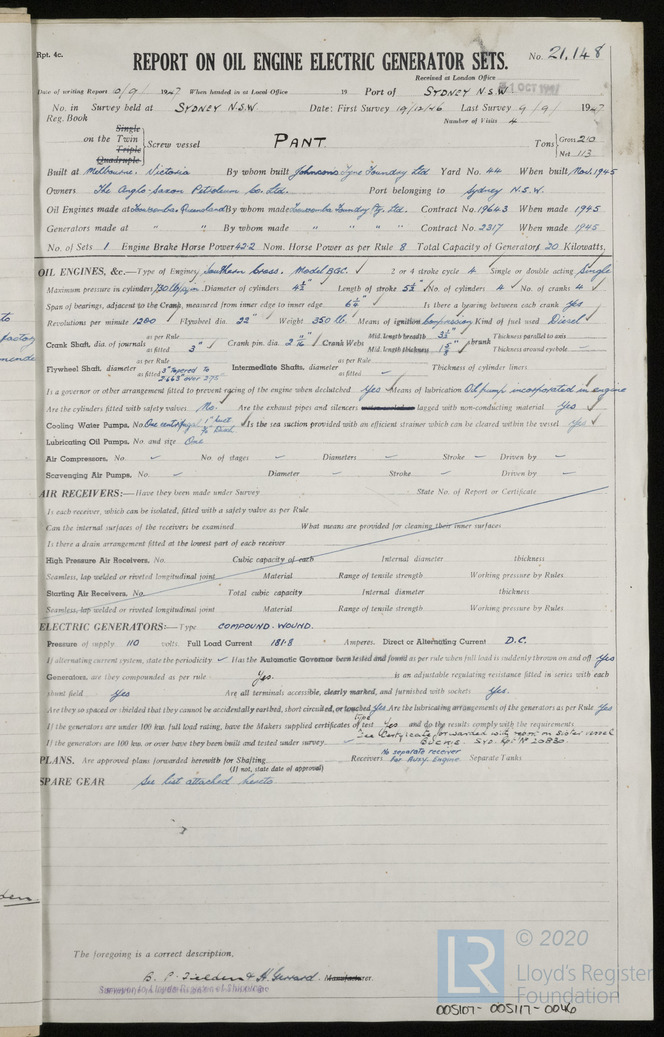 Rpt. 4c.
REPORT ON OIL ENGINE ELECTRIC GENERATOR SETS. No. 21,148
Received at London Office
Date of writing Report 10/9/ 1947 When handed in at Local Office 19 Port of SYDNEY N.S.W
No. in Reg. Book Survey held at SYDNEY N.S.W Date: First Survey 19/12/46 Last Survey 9/9/ 1947
Number of Visits 4
on the Single Twin Triple Quadruple Screw vessel PANT Tons Gross 210 Net 113
Built at Melbourne. Victoria By whom built Johnsons Tyne Foundry Ltd Yard No. 44 When built Nov. 1945
Owners The Anglo-Saxon Petroleum Co. Ltd. Port belonging to Sydney N.S.W.
Oil Engines made at Toowoomba. Queensland By whom made Toowoomba Foundry Pty. Ltd. Contract No. 19643 When made 1945
Generators made at " " By whom made " " " " Contract No. 2317 When made 1945
No. of Sets 1 Engine Brake Horse Power 42.2 Nom. Horse Power as per Rule 8 Total Capacity of Generators 20 Kilowatts.
OIL ENGINES, &c.—Type of Engines Southern Cross. Model BGC. 2 or 4 stroke cycle 4 Single or double acting Single
Maximum pressure in cylinders 730 lb/sq.in Diameter of cylinders 4½" Length of stroke 5½" No. of cylinders 4 No. of cranks 4
Span of bearings, adjacent to the Crank, measured from inner edge to inner edge. Is there a bearing between each crank Yes
Revolutions per minute 1200 Flywheel dia. 22" Weight 350 lb. Means of ignition Compression Kind of fuel used Diesel
Crank Shaft, dia. of journals as per Rule as fitted 3" Crank pin. dia. Crank Webs Mid. length breadth Mid. length thickness shrunk Thickness parallel to axis Thickness around eyehole
Flywheel Shaft, diameter as per Rule as fitted 3" tapered to 2.663" over 2.75" Intermediate Shafts, diameter as per Rule as fitted — Thickness of cylinder liners
Is a governor or other arrangement fitted to prevent racing of the engine when declutched. Yes Means of lubrication Oil pump incorporated in engine
Are the cylinders fitted with safety valves No. Are the exhaust pipes and silencers lagged with non-conducting material Yes
Cooling Water Pumps, No. One centrifugal 1" Suct ¾" Disch Is the sea suction provided with an efficient strainer which can be cleared within the vessel yes
Lubricating Oil Pumps, No. and size One
Air Compressors. No. — No. of stages — Diameters — Stroke — Driven by —
Scavenging Air Pumps. No. — Diameter — Stroke — Driven by —
AIR RECEIVERS:—Have they been made under Survey State No. of Report or Certificate
Is each receiver, which can be isolated, fitted with a safety valve as per Rule
Can the internal surfaces of the receivers be examined What means are provided for cleaning their inner surfaces
Is there a drain arrangement fitted at the lowest part of each receiver
High Pressure Air Receivers, No. Cubic capacity of each Internal diameter thickness
Seamless, lap welded or riveted longitudinal joint Material Range of tensile strength Working pressure by Rules
Starting Air Receivers, No. Total cubic capacity Internal diameter thickness
Seamless, lap welded or riveted longitudinal joint Material Range of tensile strength Working pressure by Rules
ELECTRIC GENERATORS:—Type COMPOUND. WOUND.
Pressure of supply 110 volts. Full Load Current 181.8 Amperes. Direct or Alternating Current D.C.
If alternating current system, state the periodicity — Has the Automatic Governor been tested and found as per rule when full load is suddenly thrown on and off Yes
Generators, are they compounded as per rule Yes. is an adjustable regulating resistance fitted in series with each
shunt field Yes Are all terminals accessible, clearly marked, and furnished with sockets Yes.
Are they so spaced or shielded that they cannot be accidentally earthed, short circuited, or touched Yes Are the lubricating arrangements of the generators as per Rule Yes
If the generators are under 100 kw. full load rating, have the Makers supplied certificates of type test Yes and do the results comply with the requirements
See Certificate forwarded with report on sister vessel
If the generators are 100 kw. or over have they been built and tested under survey. — Syd. Rpt No 20830.
PLANS. Are approved plans forwarded herewith for Shafting (If not, state date of approval) Receivers No separate receiver for Auxy. Engine Separate Tanks
SPARE GEAR See list attached hereto
The foregoing is a correct description,
B. P. Fielden & H. Gerrard. Manufacturer.
Surveyor to Lloyd's Register of Shipping
LR © 2020
Lloyd's Register
Foundation
005107- 005117-0046